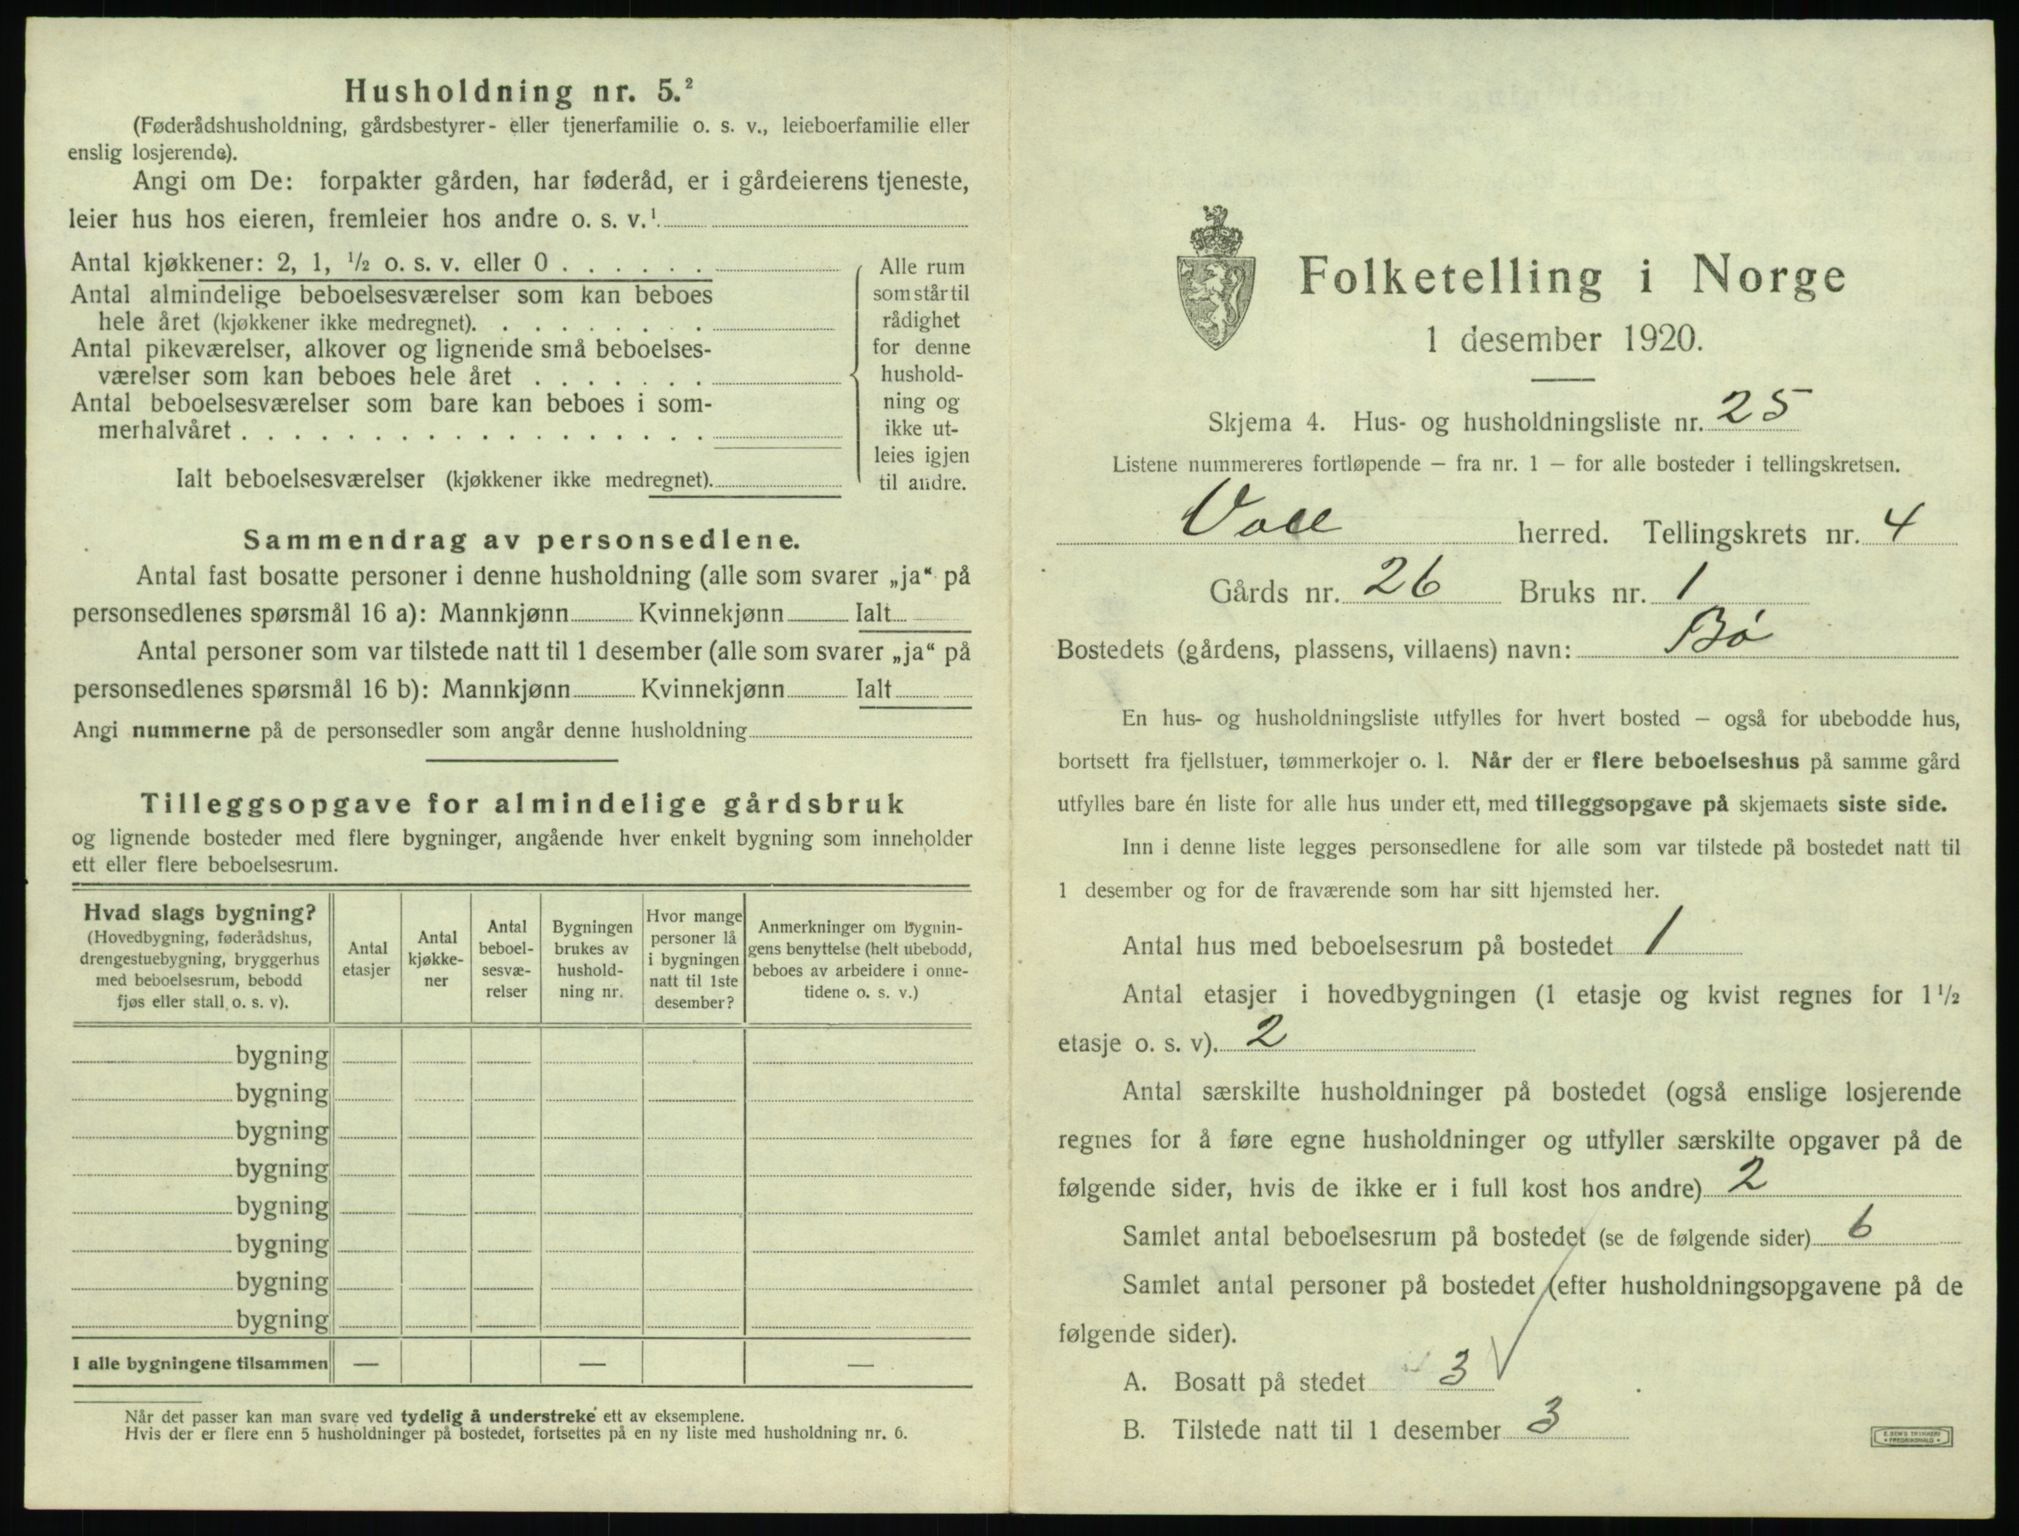 Husholdning nr. 5.²
(Føderådshusholdning, gårdsbestyrer- eller tjenerfamilie o. s. v., leieboerfamilie eller
enslig losjerende).
Angi om De: forpakter gården, har føderåd, er i gårdeierens tjeneste,
leier hus hos eieren, fremleier hos andre o. s. v.¹
Antal kjøkkener: 2, 1, ½ o. s. v. eller 0 . . . . . .
Antal almindelige beboelsesværelser som kan beboes
hele året (kjøkkener ikke medregnet). . . . . . . . .
Antal pikeværelser, alkover og lignende små beboelses-
værelser som kan beboes hele året . . . . . . .
Antal beboelsesværelser som bare kan beboes i som-
merhalvåret . . . . . . . . . . . . . . . . . .
Ialt beboelsesværelser (kjøkkener ikke medregnet).
Alle rum
som står til
rådighet
for denne
hushold-
ning og
ikke ut-
leies igjen
til andre.
Sammendrag av personsedlene.
Antal fast bosatte personer i denne husholdning (alle som svarer „ja“ på
personsedlenes spørsmål 16 a): Mannkjønn Kvinnekjønn Ialt
Antal personer som var tilstede natt til 1 desember (alle som svarer „ja“ på
personsedlenes spørsmål 16 b): Mannkjønn Kvinnekjønn Ialt
Angi nummerne på de personsedler som angår denne husholdning
Tilleggsopgave for almindelige gårdsbruk
og lignende bosteder med flere bygninger, angående hver enkelt bygning som inneholder
ett eller flere beboelsesrum.
Hvad slags bygning?
(Hovedbygning, føderådshus,
drengestuebygning, bryggerhus
med beboelsesrum, bebodd
fjøs eller stall o. s. v).
Antal
etasjer
Antal
kjøkke-
ner
Antal
beboel-
sesvæ-
relser
Bygningen
brukes av
hushold-
ning nr.
Hvor mange
personer lå
i bygningen
natt til 1ste
desember?
Anmerkninger om bygnin-
gens benyttelse (helt ubebodd,
beboes av arbeidere i onne-
tidene o. s. v.)
bygning
bygning
bygning
bygning
bygning
bygning
bygning
bygning
I alle bygningene tilsammen — — —
Når det passer kan man svare ved tydelig å understreke ett av eksemplene.
Hvis der er flere enn 5 husholdninger på bostedet, fortsettes på en ny liste med husholdning nr. 6.
Folketelling i Norge
1 desember 1920.
Skjema 4. Hus- og husholdningsliste nr. 25
Listene nummereres fortløpende – fra nr. 1 – for alle bosteder i tellingskretsen.
Voll herred. Tellingskrets nr. 4
Gårds nr. 26 Bruks nr. 1
Bostedets (gårdens, plassens, villaens) navn: Bø
En hus- og husholdningsliste utfylles for hvert bosted – også for ubebodde hus,
bortsett fra fjellstuer, tømmerkojer o. l. Når der er flere beboelseshus på samme gård
utfylles bare én liste for alle hus under ett, med tilleggsopgave på skjemaets siste side.
Inn i denne liste legges personsedlene for alle som var tilstede på bostedet natt til
1 desember og for de fraværende som har sitt hjemsted her.
Antal hus med beboelsesrum på bostedet 1
Antal etasjer i hovedbygningen (1 etasje og kvist regnes for 1½
etasje o. s. v). 2
Antal særskilte husholdninger på bostedet (også enslige losjerende
regnes for å føre egne husholdninger og utfyller særskilte opgaver på de
følgende sider, hvis de ikke er i full kost hos andre) 2
Samlet antal beboelsesrum på bostedet (se de følgende sider) 6
Samlet antal personer på bostedet (efter husholdningsopgavene på de
følgende sider).
A. Bosatt på stedet 3
B. Tilstede natt til 1 desember 3